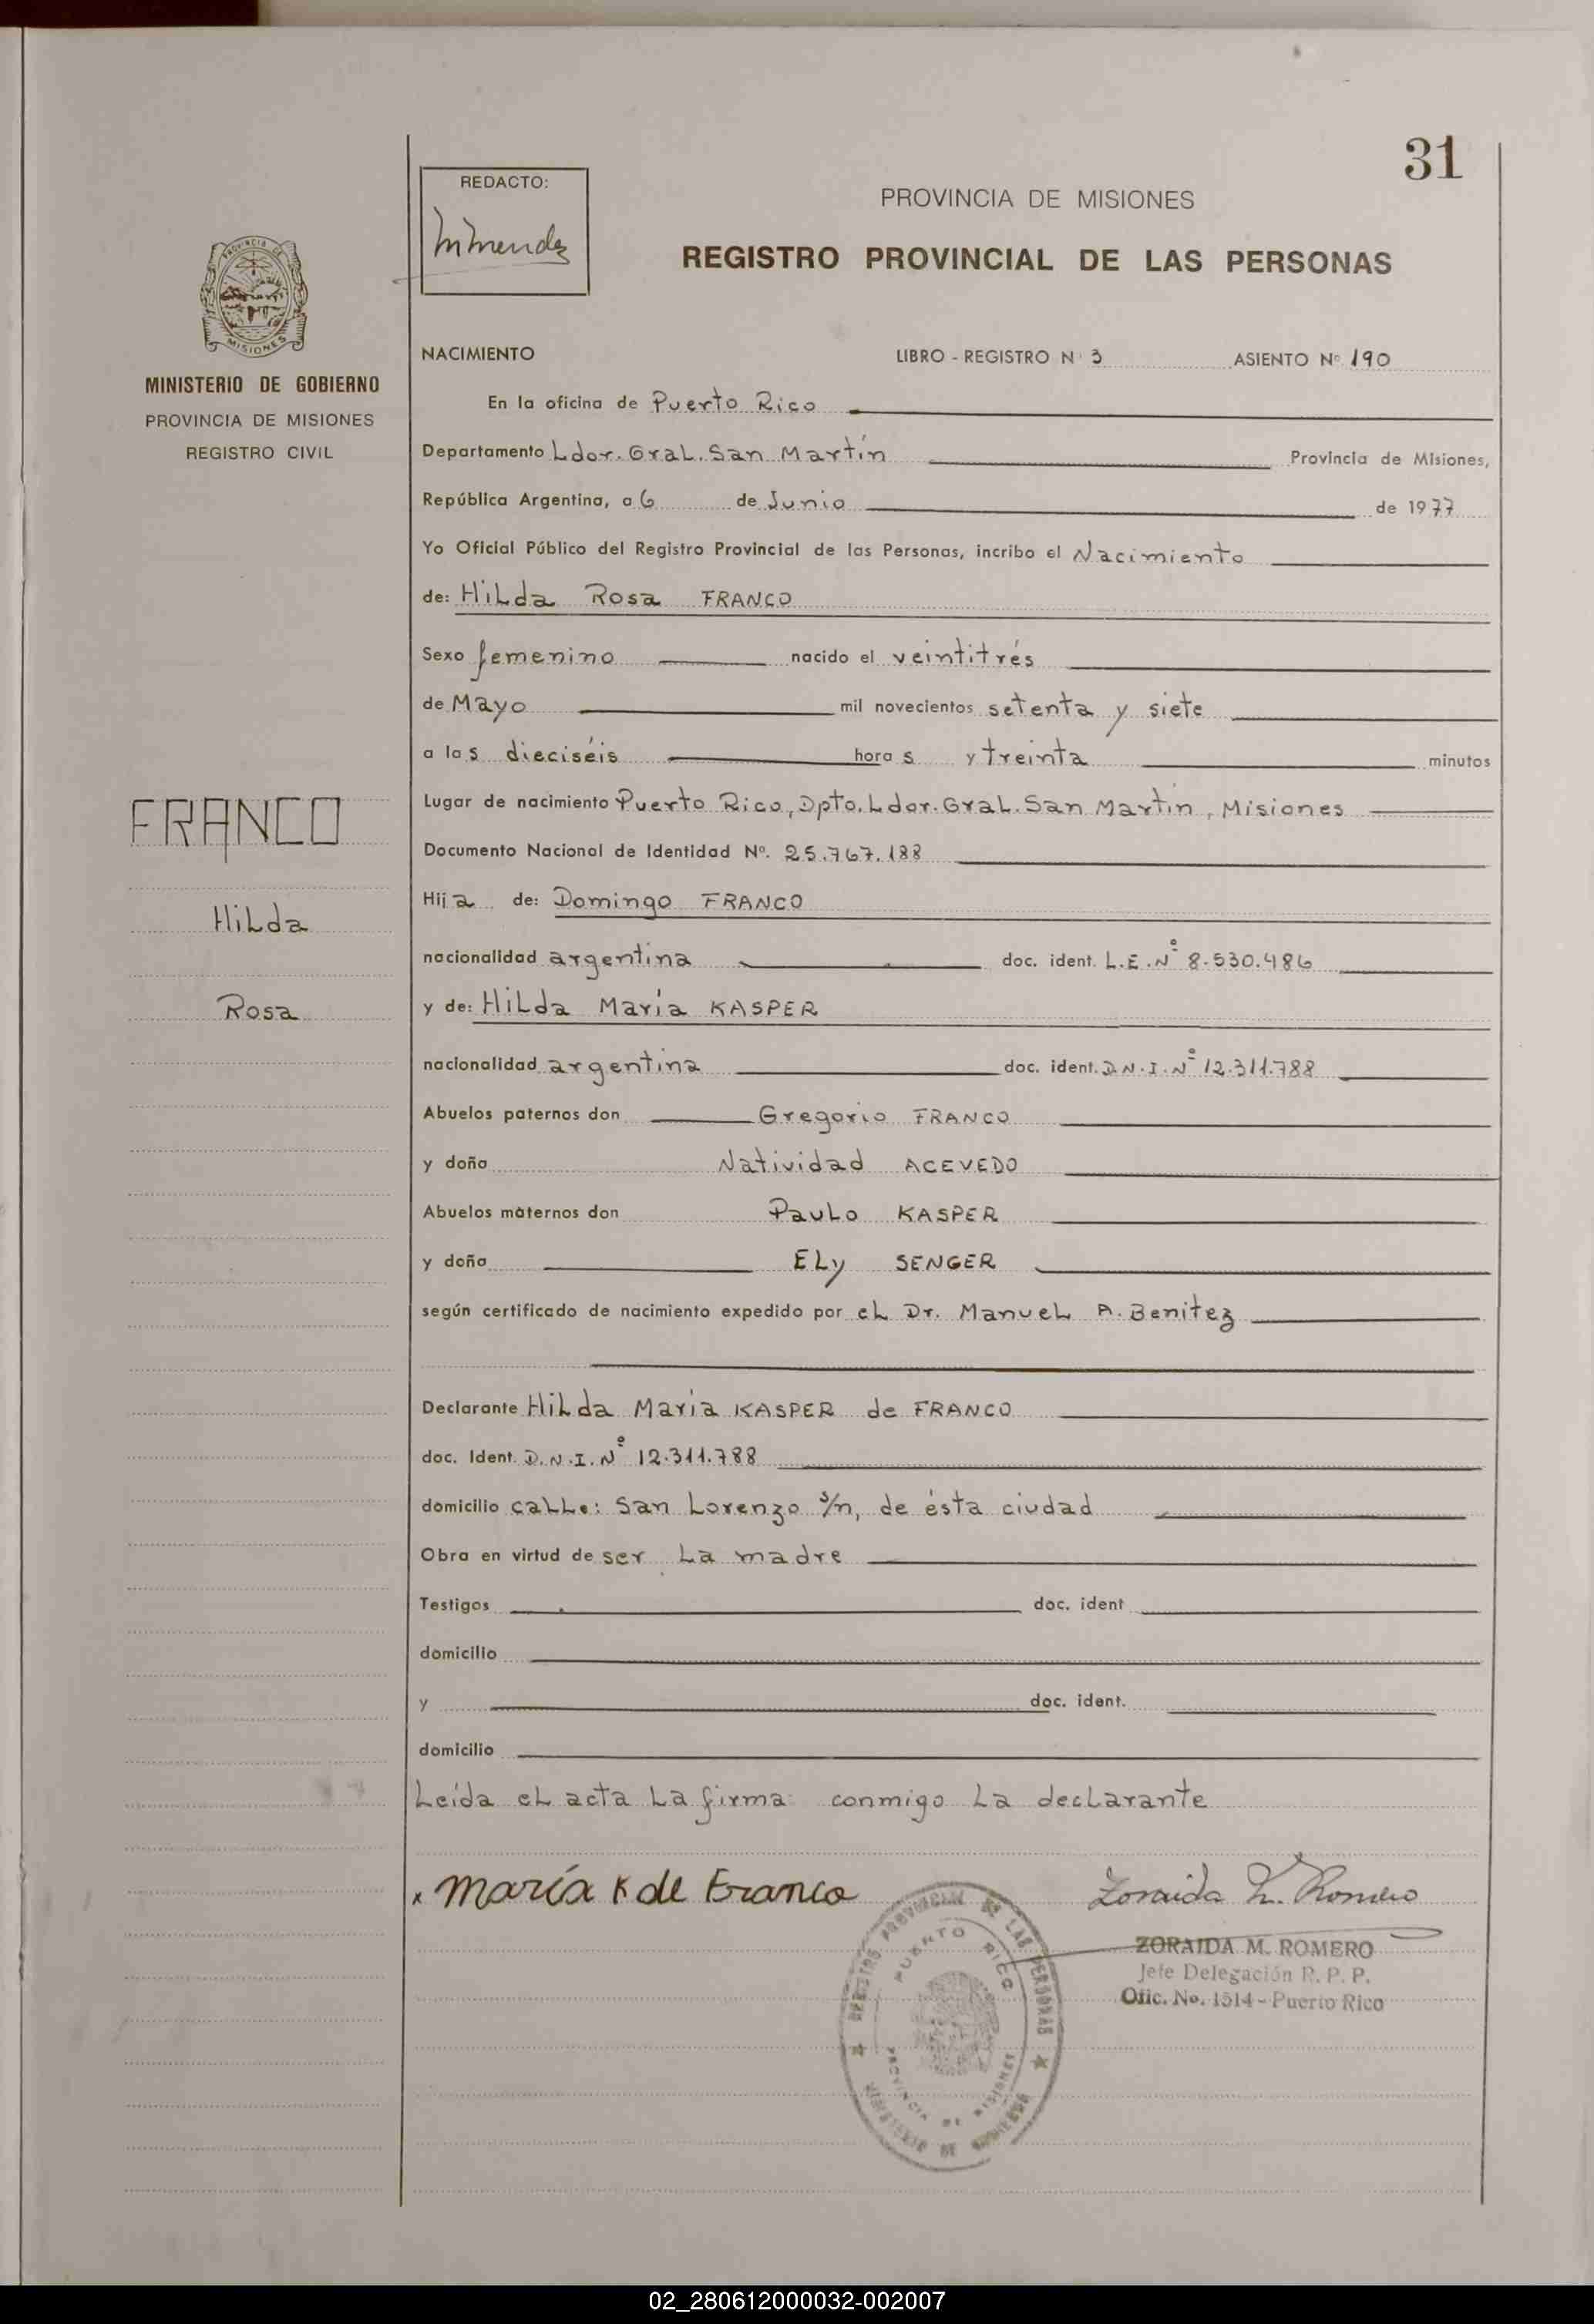 31
REDACTO:
MMendez
PROVINCIA DE MISIONES
REGISTRO PROVINCIAL DE LAS PERSONAS
PROVINCIA DE
MISIONES
MINISTERIO DE GOBIERNO
PROVINCIA DE MISIONES
REGISTRO CIVIL
FRANCO
Hilda
Rosa
NACIMIENTO LIBRO - REGISTRO N 3 ASIENTO Nº 190
En la oficina de Puerto Rico
Departamento Ldor. Gral. San Martín Provincia de Misiones,
República Argentina, a 6 de Junio de 1977
Yo Oficial Público del Registro Provincial de las Personas, incribo el Nacimiento
de: Hilda Rosa FRANCO
Sexo femenino nacido el veintitrés
de Mayo mil novecientos setenta y siete
a las dieciséis horas y treinta minutos
Lugar de nacimiento Puerto Rico, Dpto. Ldor. Gral. San Martín, Misiones
Documento Nacional de Identidad Nº. 25.767.188
Hija de: Domingo FRANCO
nacionalidad argentina doc. ident. L.E.Nº 8.530.486
y de: Hilda María KASPER
nacionalidad argentina doc. ident. D.N.I.Nº 12.311.788
Abuelos paternos don Gregorio FRANCO
y doña Natividad ACEVEDO
Abuelos maternos don Paulo KASPER
y doña Ely SENGER
según certificado de nacimiento expedido por el Dr. Manuel A. Benitez
Declarante Hilda María KASPER de FRANCO
doc. Ident. D.N.I.Nº 12.311.788
domicilio calle: San Lorenzo s/n, de ésta ciudad
Obra en virtud de ser la madre
Testigos doc. ident
domicilio
y doc. ident.
domicilio
Leída el acta la firma conmigo la declarante
x María K de Franco
Zoraida M. Romero
ZORAIDA M. ROMERO
Jefe Delegación R. P. P.
Ofic. No. 1514 - Puerto Rico
REGISTRO PROVINCIAL DE LAS PERSONAS
PUERTO RICO
PROVINCIA DE MISIONES
MINISTERIO DE GOBIERNO
02_280612000032-002007